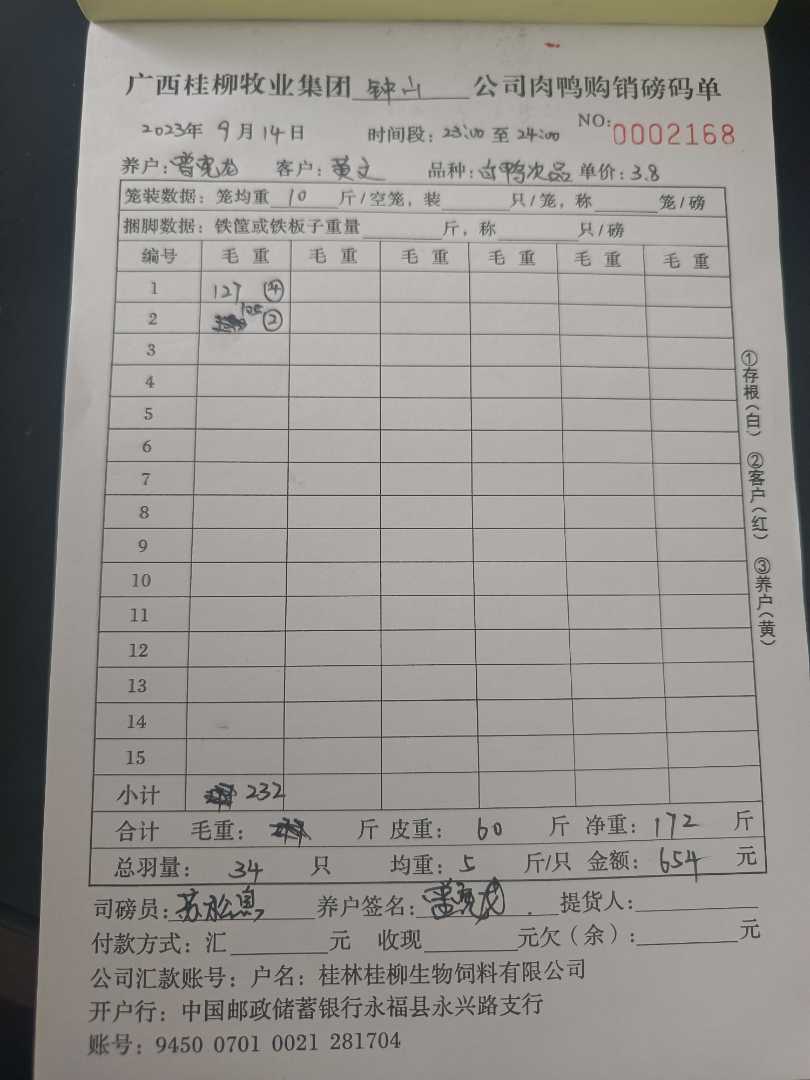 广西桂柳牧业集团 钟山 公司肉鸭购销磅码单
2023年 9月 14日 时间段: 23:00 至 24:00 NO: 0002168
养户: 曾宪龙 客户: 黄文 品种: 白鸭次品 单价: 3.8
笼装数据: 笼均重 10 斤/空笼, 装 只/笼, 称 笼/磅
捆脚数据: 铁筐或铁板子重量 斤, 称 只/磅
编号 毛重 毛重 毛重 毛重 毛重 毛重
1 127 ④
2 105 ②
3
4
5
6
7
8
9
10
11
12
13
14
15
小计 232
合计 毛重: 斤 皮重: 60 斤 净重: 172 斤
总羽量: 34 只 均重: 5 斤/只 金额: 654 元
司磅员: 苏 养户签名: 曾宪龙 提货人:
付款方式: 汇 元 收现 元欠(余): 元
公司汇款账号: 户名: 桂林桂柳生物饲料有限公司
开户行: 中国邮政储蓄银行永福县永兴路支行
账号: 9450 0701 0021 281704
①存根(白) ②客户(红) ③养户(黄)